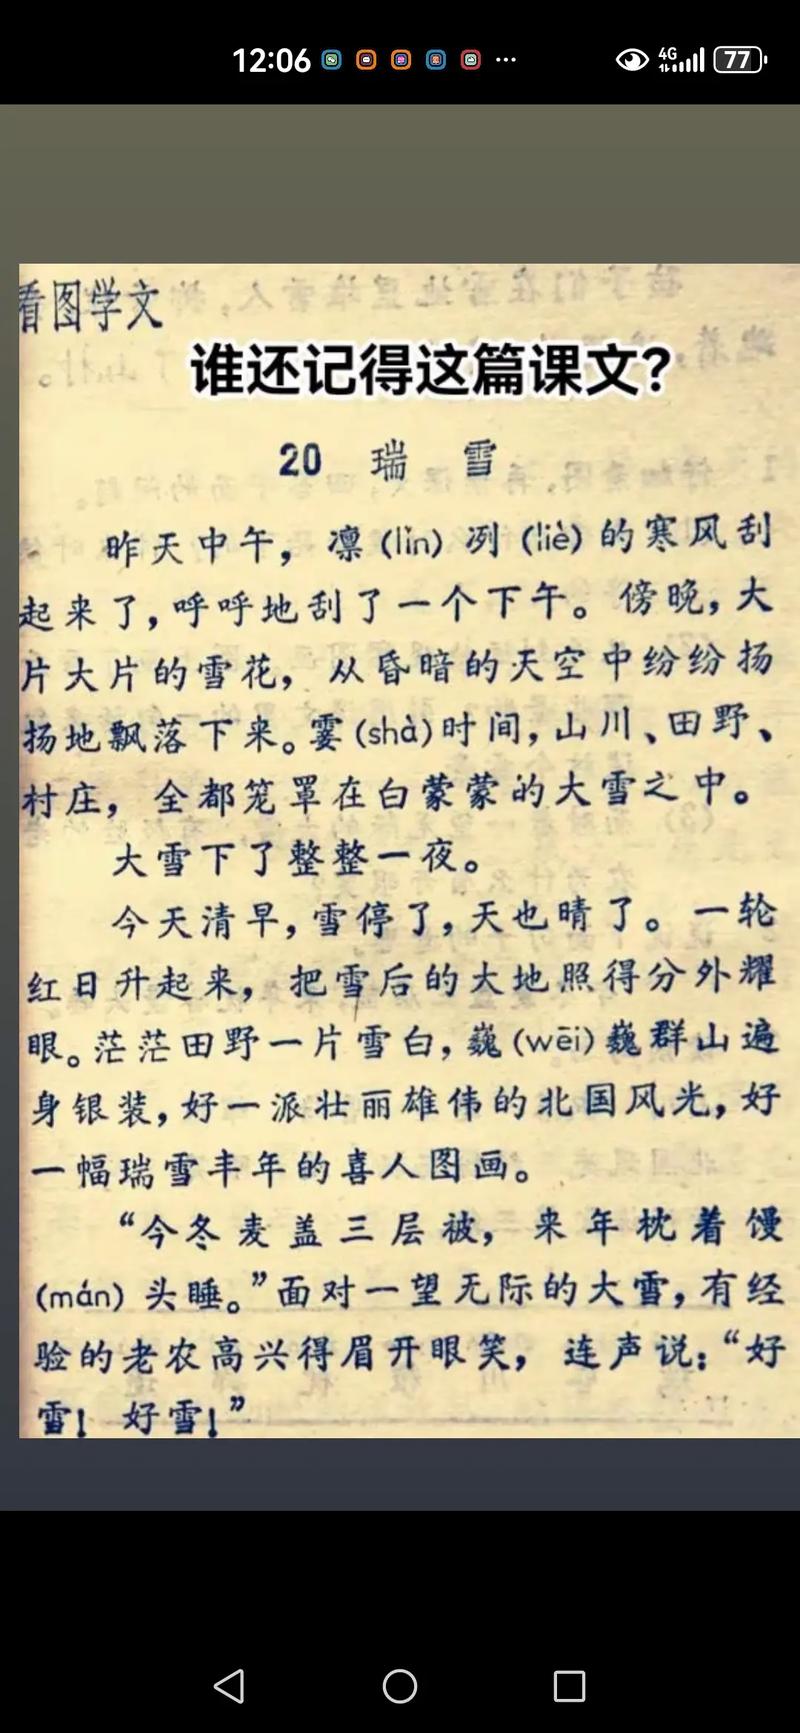 12:06
4G
77
看图学文
谁还记得这篇课文?
20 瑞 雪
昨天中午，凛(lǐn)冽(liè)的寒风刮
起来了，呼呼地刮了一个下午。傍晚，大
片大片的雪花，从昏暗的天空中纷纷扬
扬地飘落下来。霎(shà)时间，山川、田野、
村庄，全都笼罩在白蒙蒙的大雪之中。
大雪下了整整一夜。
今天清早，雪停了，天也晴了。一轮
红日升起来，把雪后的大地照得分外耀
眼。茫茫田野一片雪白，巍(wēi)巍群山遍
身银装，好一派壮丽雄伟的北国风光，好
一幅瑞雪丰年的喜人图画。
“今冬麦盖三层被，来年枕着馒
(mán)头睡。”面对一望无际的大雪，有经
验的老农高兴得眉开眼笑，连声说：“好
雪！好雪！”